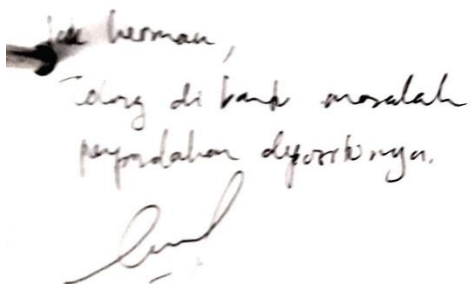 Pak Herman,
Tolong di bank masalah
perpindahan depositonya.